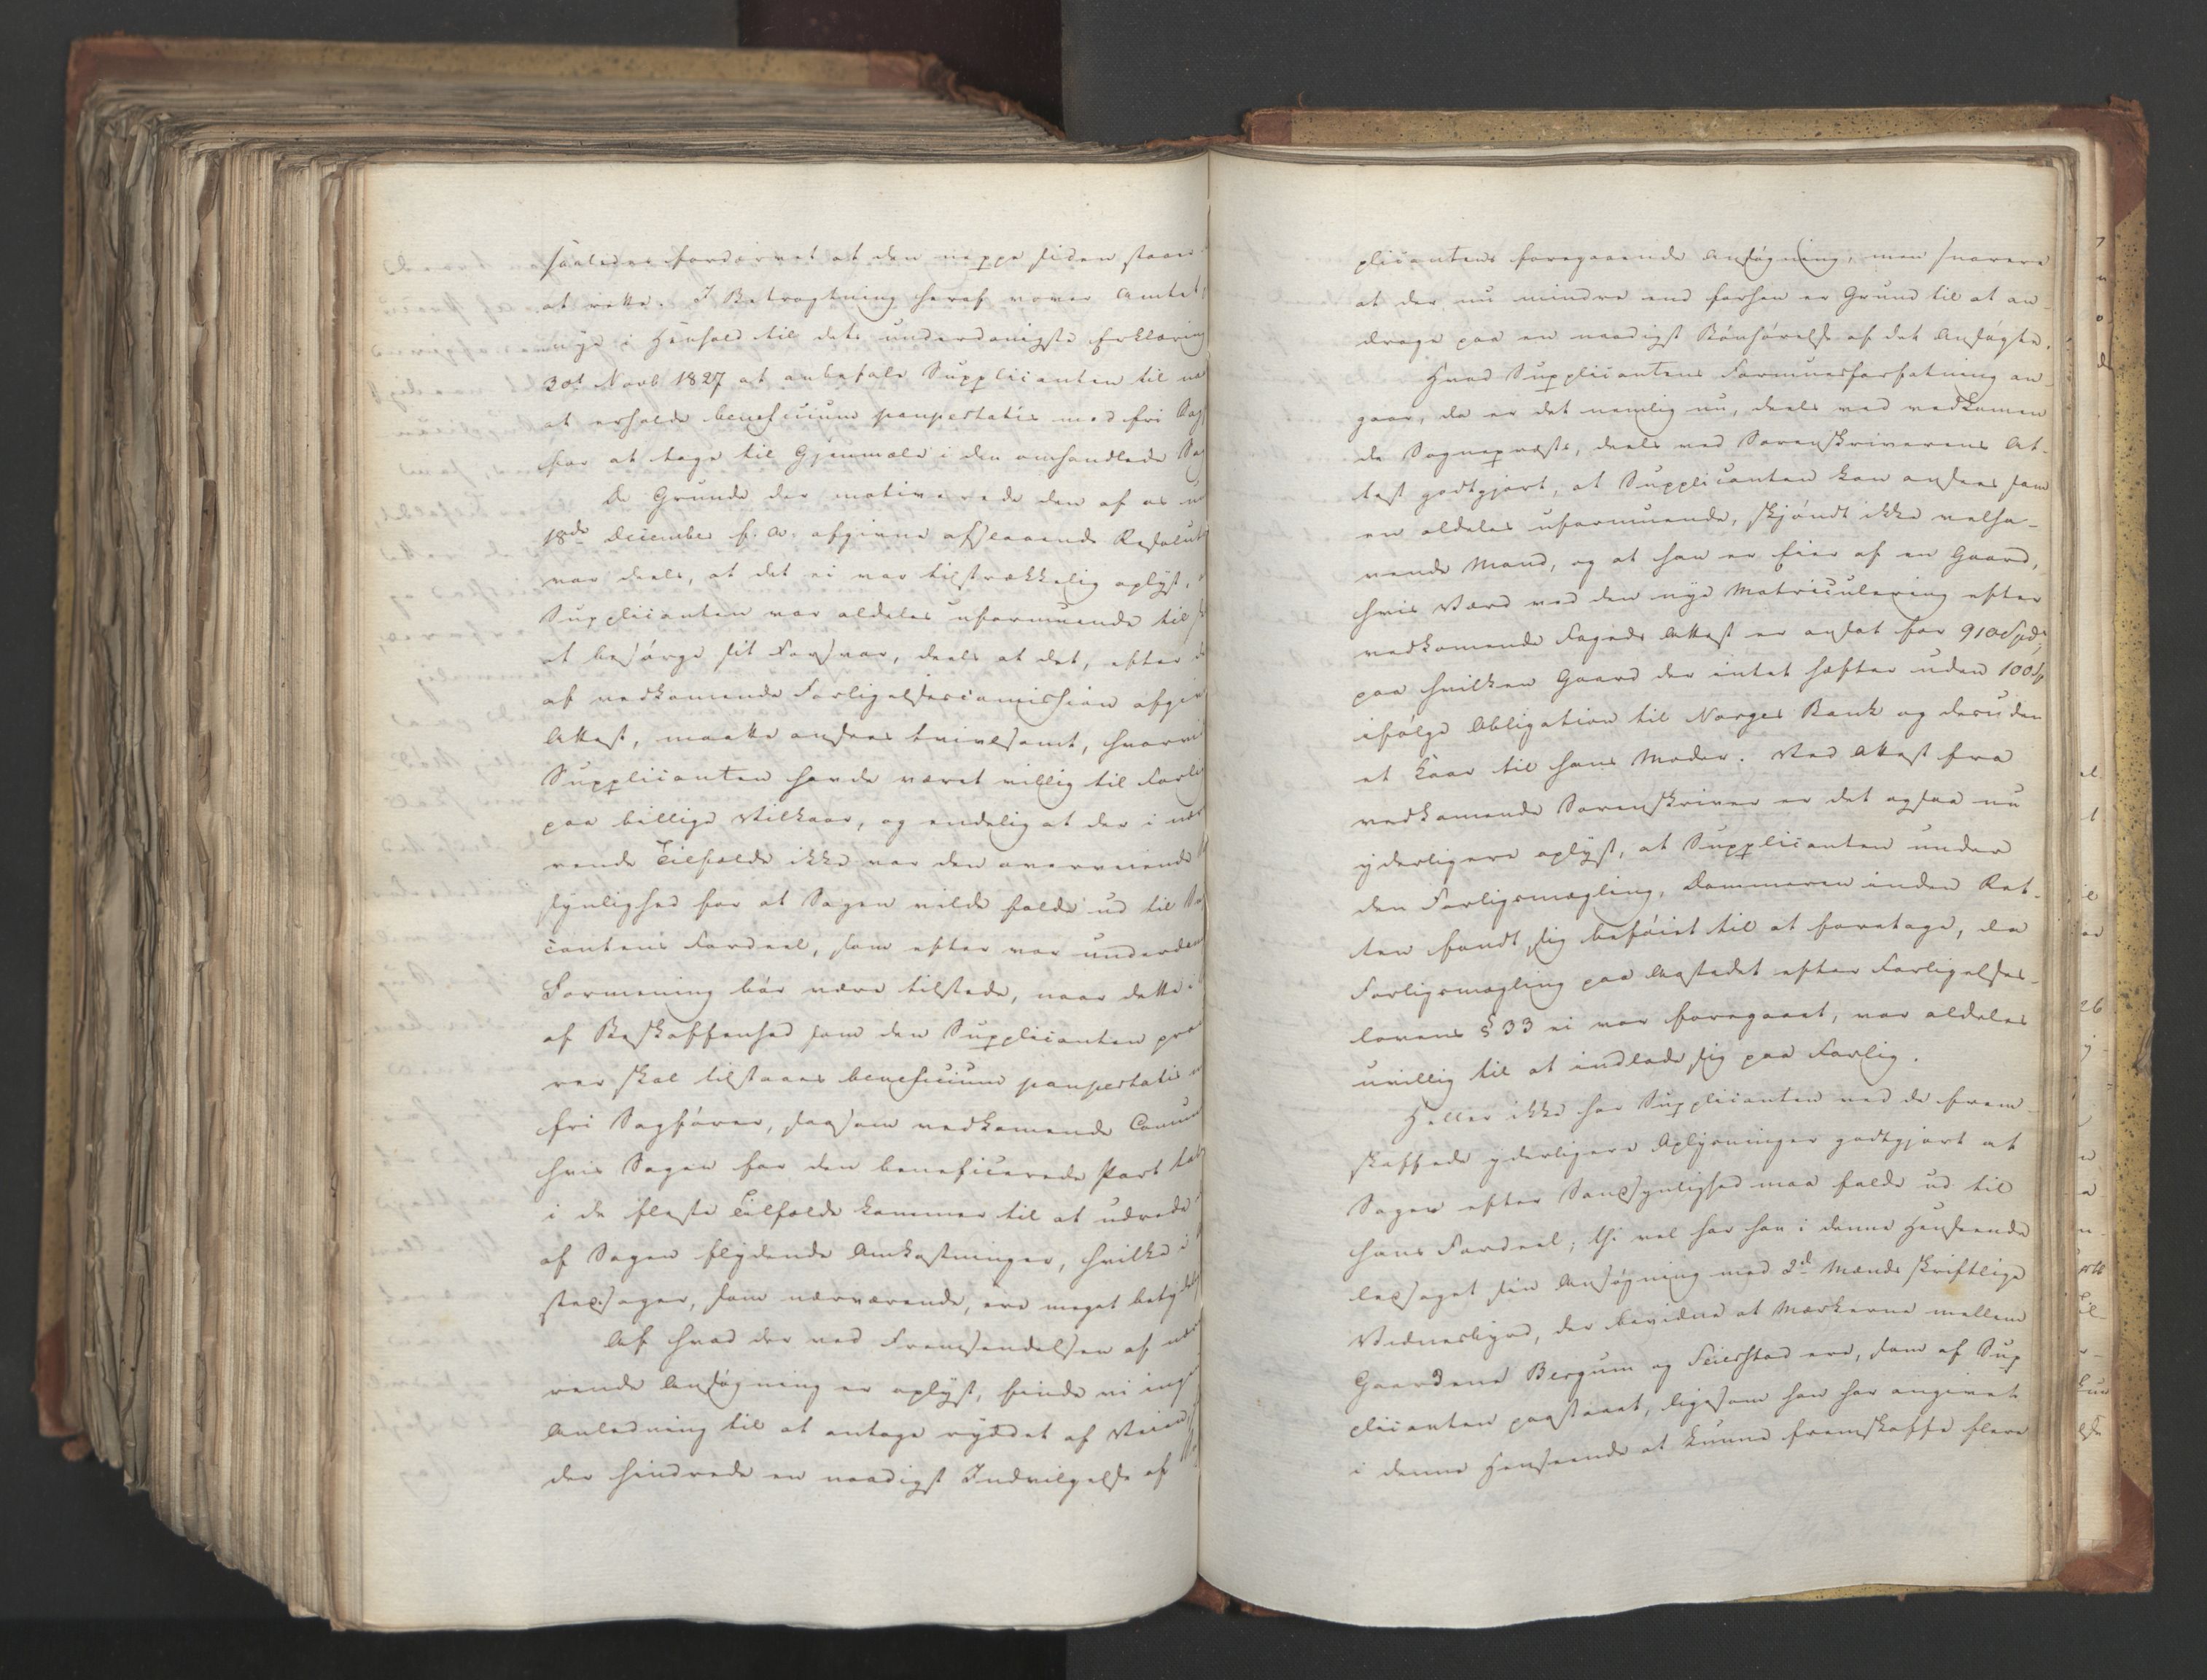 saaledes fordærvet at den neppe siden staaer
at rette. I Betragtning heraf vover Amtet,
nye i Henhold til dets underdanigste Erklæring
30te Novb 1827 at anbefale Supplicanten til na
at erholde beneficium paupertatis med fri Sag
for at tage til Gjenmæle i den omhandlede Sag
De Grunde der motiverede den af os un
18de December f. A. afgivne afslaaende Resolut
var deels, at det ei var tilstrækkelig oplyst,
Supplicanten var aldeles uformuende til
at besørge sit Forsvar, deels at det, efter d
af vedkomende Forligelsescomission afgiv
Attest, maatte ansees tvivlsomt, hvorvi
Supplicanten havde været villig til Forli
paa billige Vilkaar, og endelig at der i nær
rende Tilfælde ikke var den overveiende
synlighed for at Sagen vilde falde ud til Su
cantens Fordeel, som efter vor underdan
Formening bør være tilstede, naar dette i
af Beskaffenhed som den Supplicanten præ
rer skal tilstaaes beneficium paupertatis m
fri Sagfører, saasom vedkomende Comun
hvis Sagen for den beneficerede Part tab
i de fleste Tilfælde kommer til at udrede
af Sagen flydende Omkostninger, hvilke i
stedssager, som nærværende, ere meget betyde
Af hvad der ved Fremsendelsen af nær
rende Ansøgning er oplyst, finde vi ing
Anledning til at antage ryddet af Veien
der hindrede en naadigst Indvilgelse af
plicantens foregaaende Ansøgning, men snarere
at der nu mindre end forhen er Grund til at an-
drage paa en naadigst Bønhørelse af det Ansøgte.
Hvad Supplicantens Formuesforfatning an-
gaaer, da er det nemlig nu, deels ved vedkomen
de Sognepræsts, deels ved Sorenskriverens At-
test godtgjort, at Supplicanten kan ansees som
en aldeles uformuende, skjøndt ikke velha-
vende Mand, og at han er Eier af en Gaard,
hvis Værd ved den nye Matriculering efter
vedkomende Fogeds Attest er ansat for 910 Spd,
paa hvilken Gaard der intet hæfter uden 100 Sp
ifølge Obligation til Norges Bank og desuden
et Kaar til hans Moder. Ved Attest fra
vedkomende Sorenskriver er det ogsaa nu
yderligere oplyst, at Supplicanten under
den Forligsmægling, Dommeren inden Ret-
ten fandt sig beføiet til at foretage, da
Forligsmægling paa Aastedet efter Forligelses-
lovens § 33 ei var foregaaet, var aldeles
uvillig til at indlade sig paa Forlig.
Heller ikke har Supplicanten ved de frem-
skaffede yderligere Oplysninger godtgjort at
Sagen efter Sandsynlighed maa falde ud til
hans Fordeel; thi vel har han i denne Henseende
ledsaget sin Ansøgning med 2de Mænds skriftlige
Vidnesbyrd, der bevidne at Mærkerne mellem
Gaardene Bergum og Feierstad ere, som af Sup
plicanten paastaaet, ligesom han har angivet
i denne Henseende at kunne fremskaffe flere